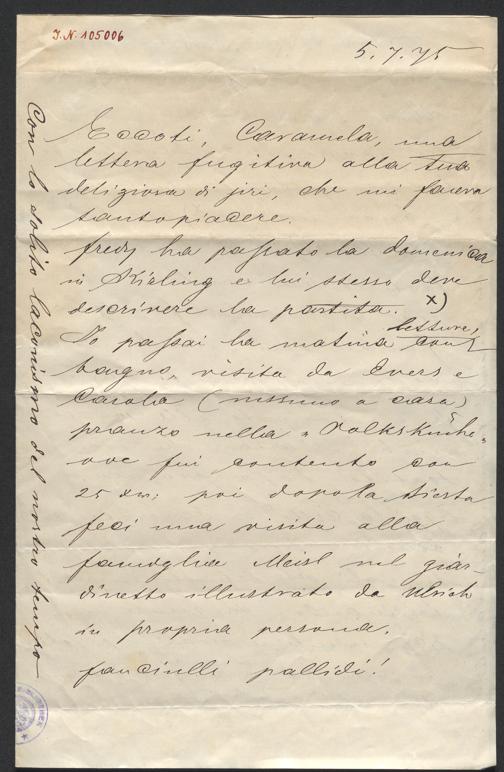 J.N. 105006
5. 7. 75
Eccoti, Caramela, una
lettera fugitiva alla tua
deligiosa di jiri, che mi faceva
tantopiacere.
fredy ha passato la domenica
in Kirling e lui stesso deve
descrivere la partita. x)
Io passai la matina con letture,
bagno, visita da Evers e
Carola (nissuno a casa)
pranzo nella "Volksküche"
ove fui contento con
25 xr; poi dopo la siesta
feci una visita alla
famiglia Meisl nel giar-
dinetto illustrato da Ulrich
in propria persona.
fanciulli pallidi!
Con lo solito laconismo del nostro tempo